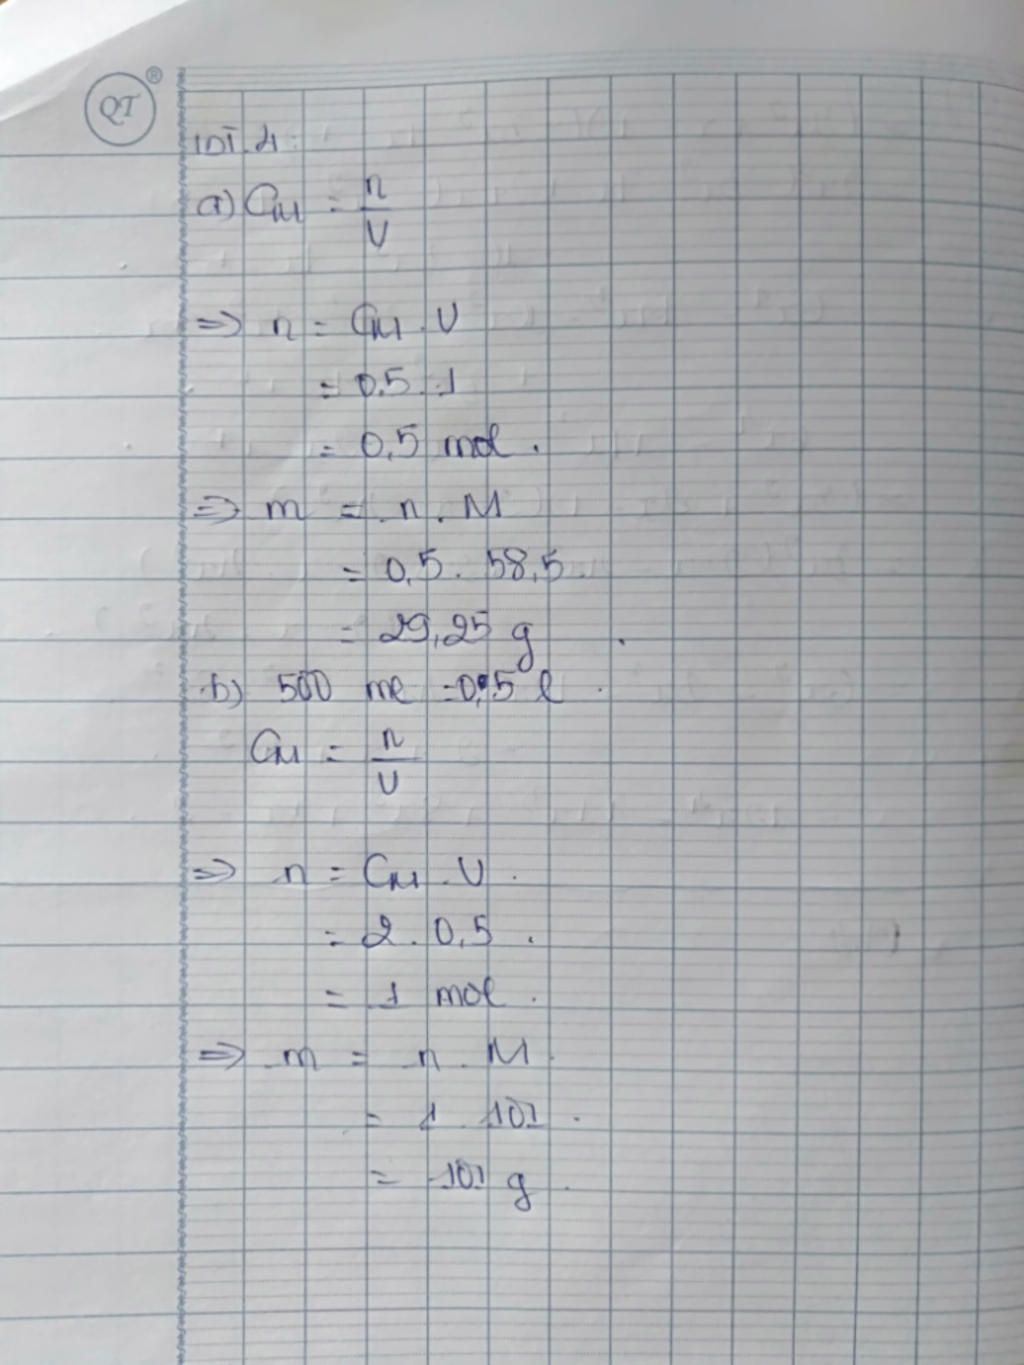 QT ®
a) CM = n/V
=> n = CM . V
= 0,5 . 1
= 0,5 mol .
=> m = n . M
= 0,5 . 58,5
= 29,25 g
b) 500 ml = 0,5 l
CM = n/V
=> n = CM . V .
= 2 . 0,5 .
= 1 mol .
=> m = n . M
= 1 . 101 .
= 101 g .